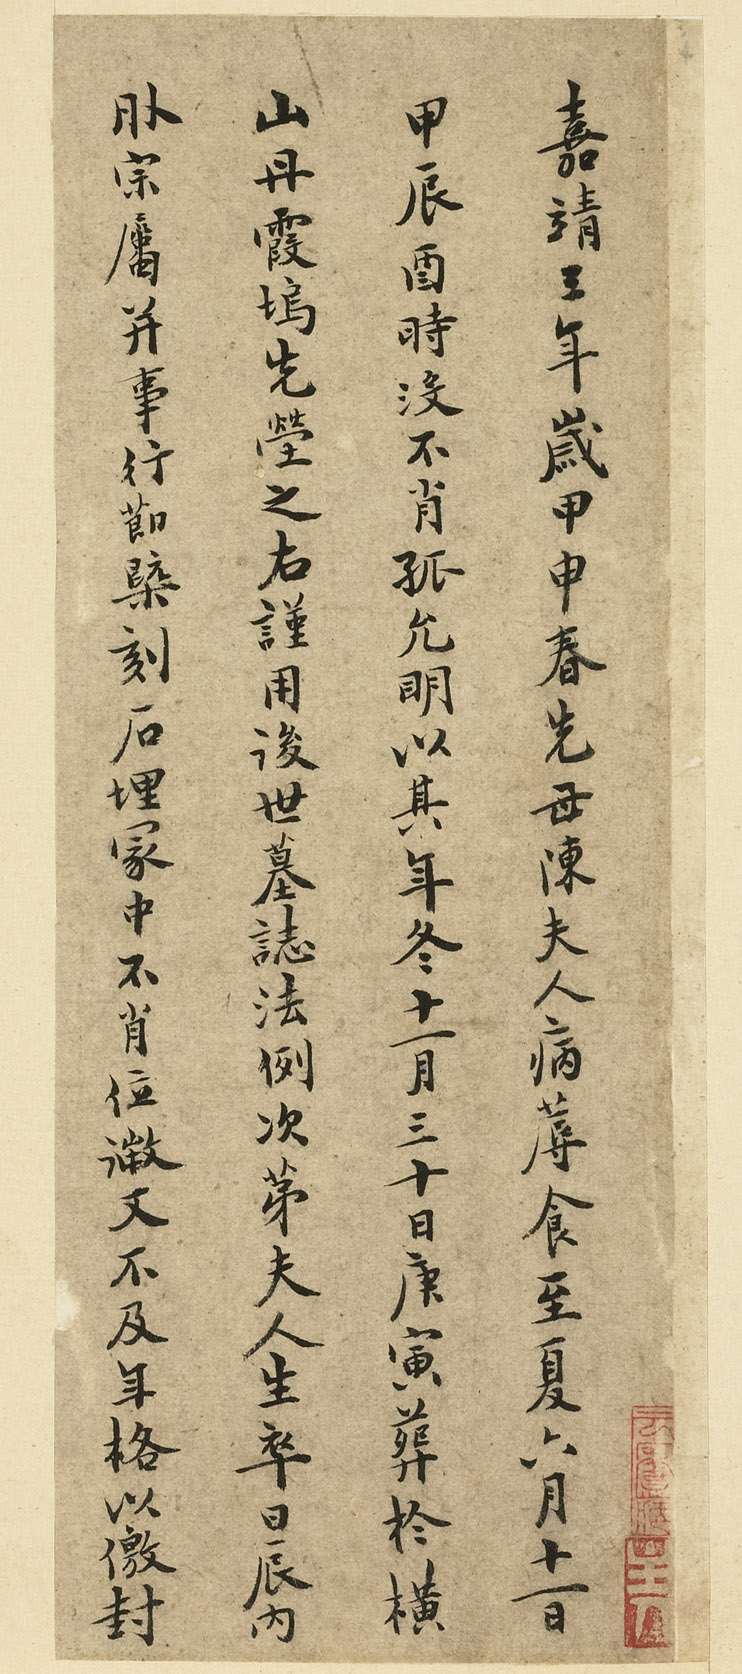 嘉靖三年歲甲申春先母陳夫人病蓐食至夏六月十一日
甲辰酉時沒不肖孤允明以其年冬十一月三十日庚寅葬於橫
山丹霞塢先塋之右謹用後世墓誌法例次第夫人生卒日辰內
外宗屬并事行節槩刻石埋冢中不肖位微文不及年格以徼封